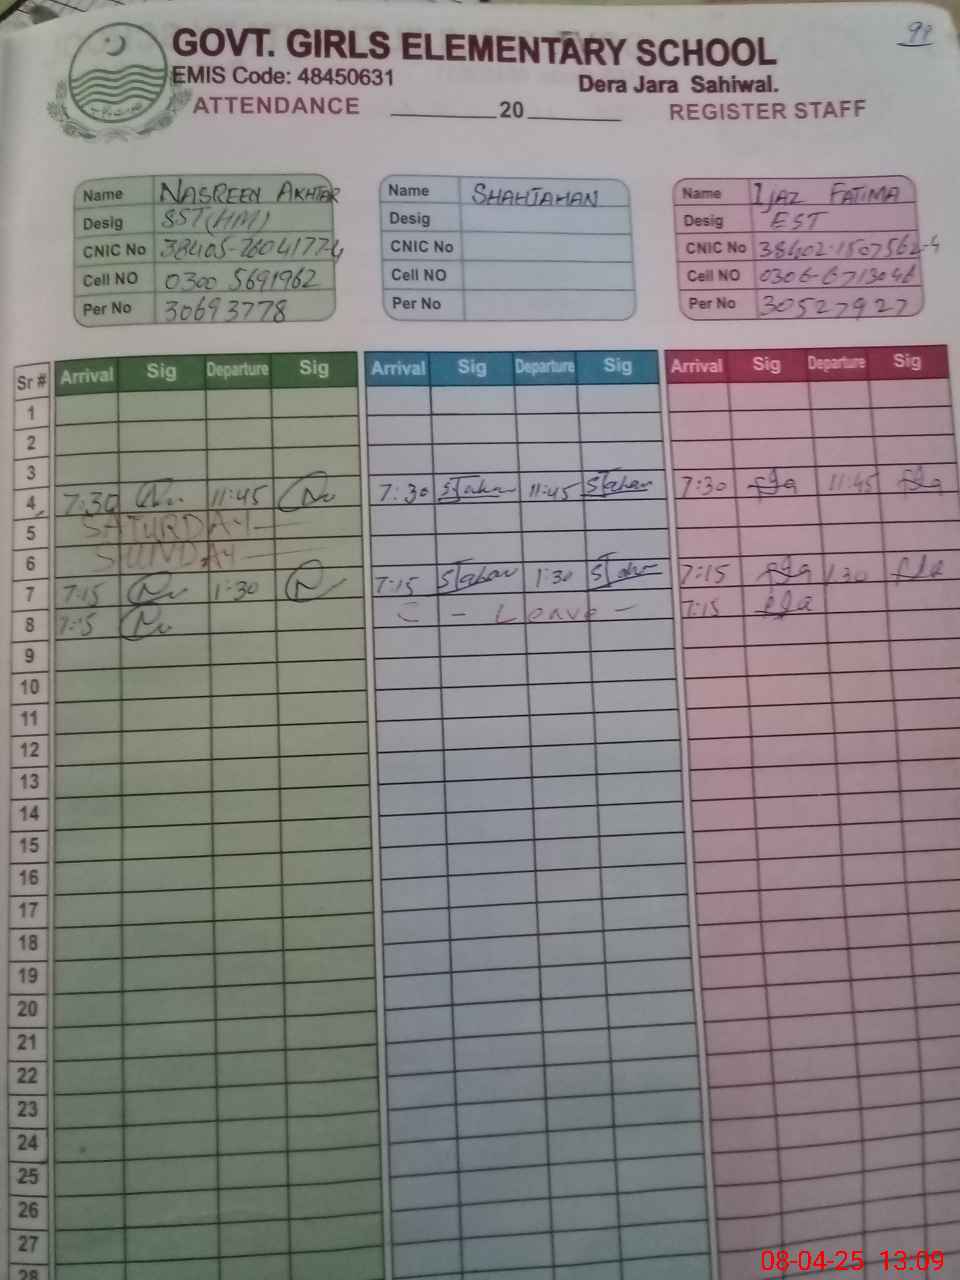 99
GOVT. GIRLS ELEMENTARY SCHOOL
EMIS Code: 48450631 Dera Jara Sahiwal.
ATTENDANCE ________20________ REGISTER STAFF
Name NASREEN AKHTAR
Desig SST(HM)
CNIC No 38405-2604177-4
Cell NO 0300 5691962
Per No 30693778
Name SHAHJAHAN
Desig
CNIC No
Cell NO
Per No
Name IJAZ FATIMA
Desig EST
CNIC No 38402-1507562-4
Cell NO 0306-6713046
Per No 30527927
Sr # Arrival Sig Departure Sig Arrival Sig Departure Sig Arrival Sig Departure Sig
1
2
3
4 7:30 11:45 7:30 11:45 7:30 11:45
5 SATURDAY
6 SUNDAY
7 7:15 1:30 7:15 1:30 7:15 1:30
8 7:15 - Leave - 7:15
9
10
11
12
13
14
15
16
17
18
19
20
21
22
23
24
25
26
27
28
08-04-25 13:09